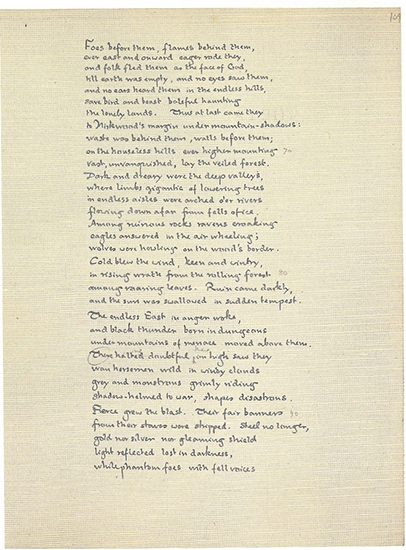 101
Foes before them, flames behind them,
ever east and onward eager rode they,
and folk fled them as the face of God,
till earth was empty, and no eyes saw them,
and no ears heard them in the endless hills,
save bird and beast baleful haunting
the lonely lands. Thus at last came they
to Mirkwood's margin under mountain-shadows:
waste was behind them, walls before them;
on the houseless hills ever higher mounting 70
vast, unvanquished, lay the veiled forest.
Dark and dreary were the deep valleys,
where limbs gigantic of lowering trees
in endless aisles were arched o'er rivers
flowing down afar from fells of ice.
Among ruinous rocks ravens croaking
eagles answered in the air wheeling;
wolves were howling on the wood's border.
Cold blew the wind, keen and wintry,
in rising wrath from the rolling forest 80
among roaring leaves. Rain came darkly,
and the sun was swallowed in sudden tempest.
The endless East in anger woke,
and black thunder born in dungeons
under mountains of menace moved above them.
There halted doubtful, on high saw they
wan horsemen wild in windy clouds
grey and monstrous grimly riding
shadow-helmed to war, shapes disastrous.
Fierce grew the blast. Their fair banners 90
from their staves were stripped. Steel no longer,
gold nor silver nor gleaming shield
light reflected lost in darkness,
while phantom foes with fell voices